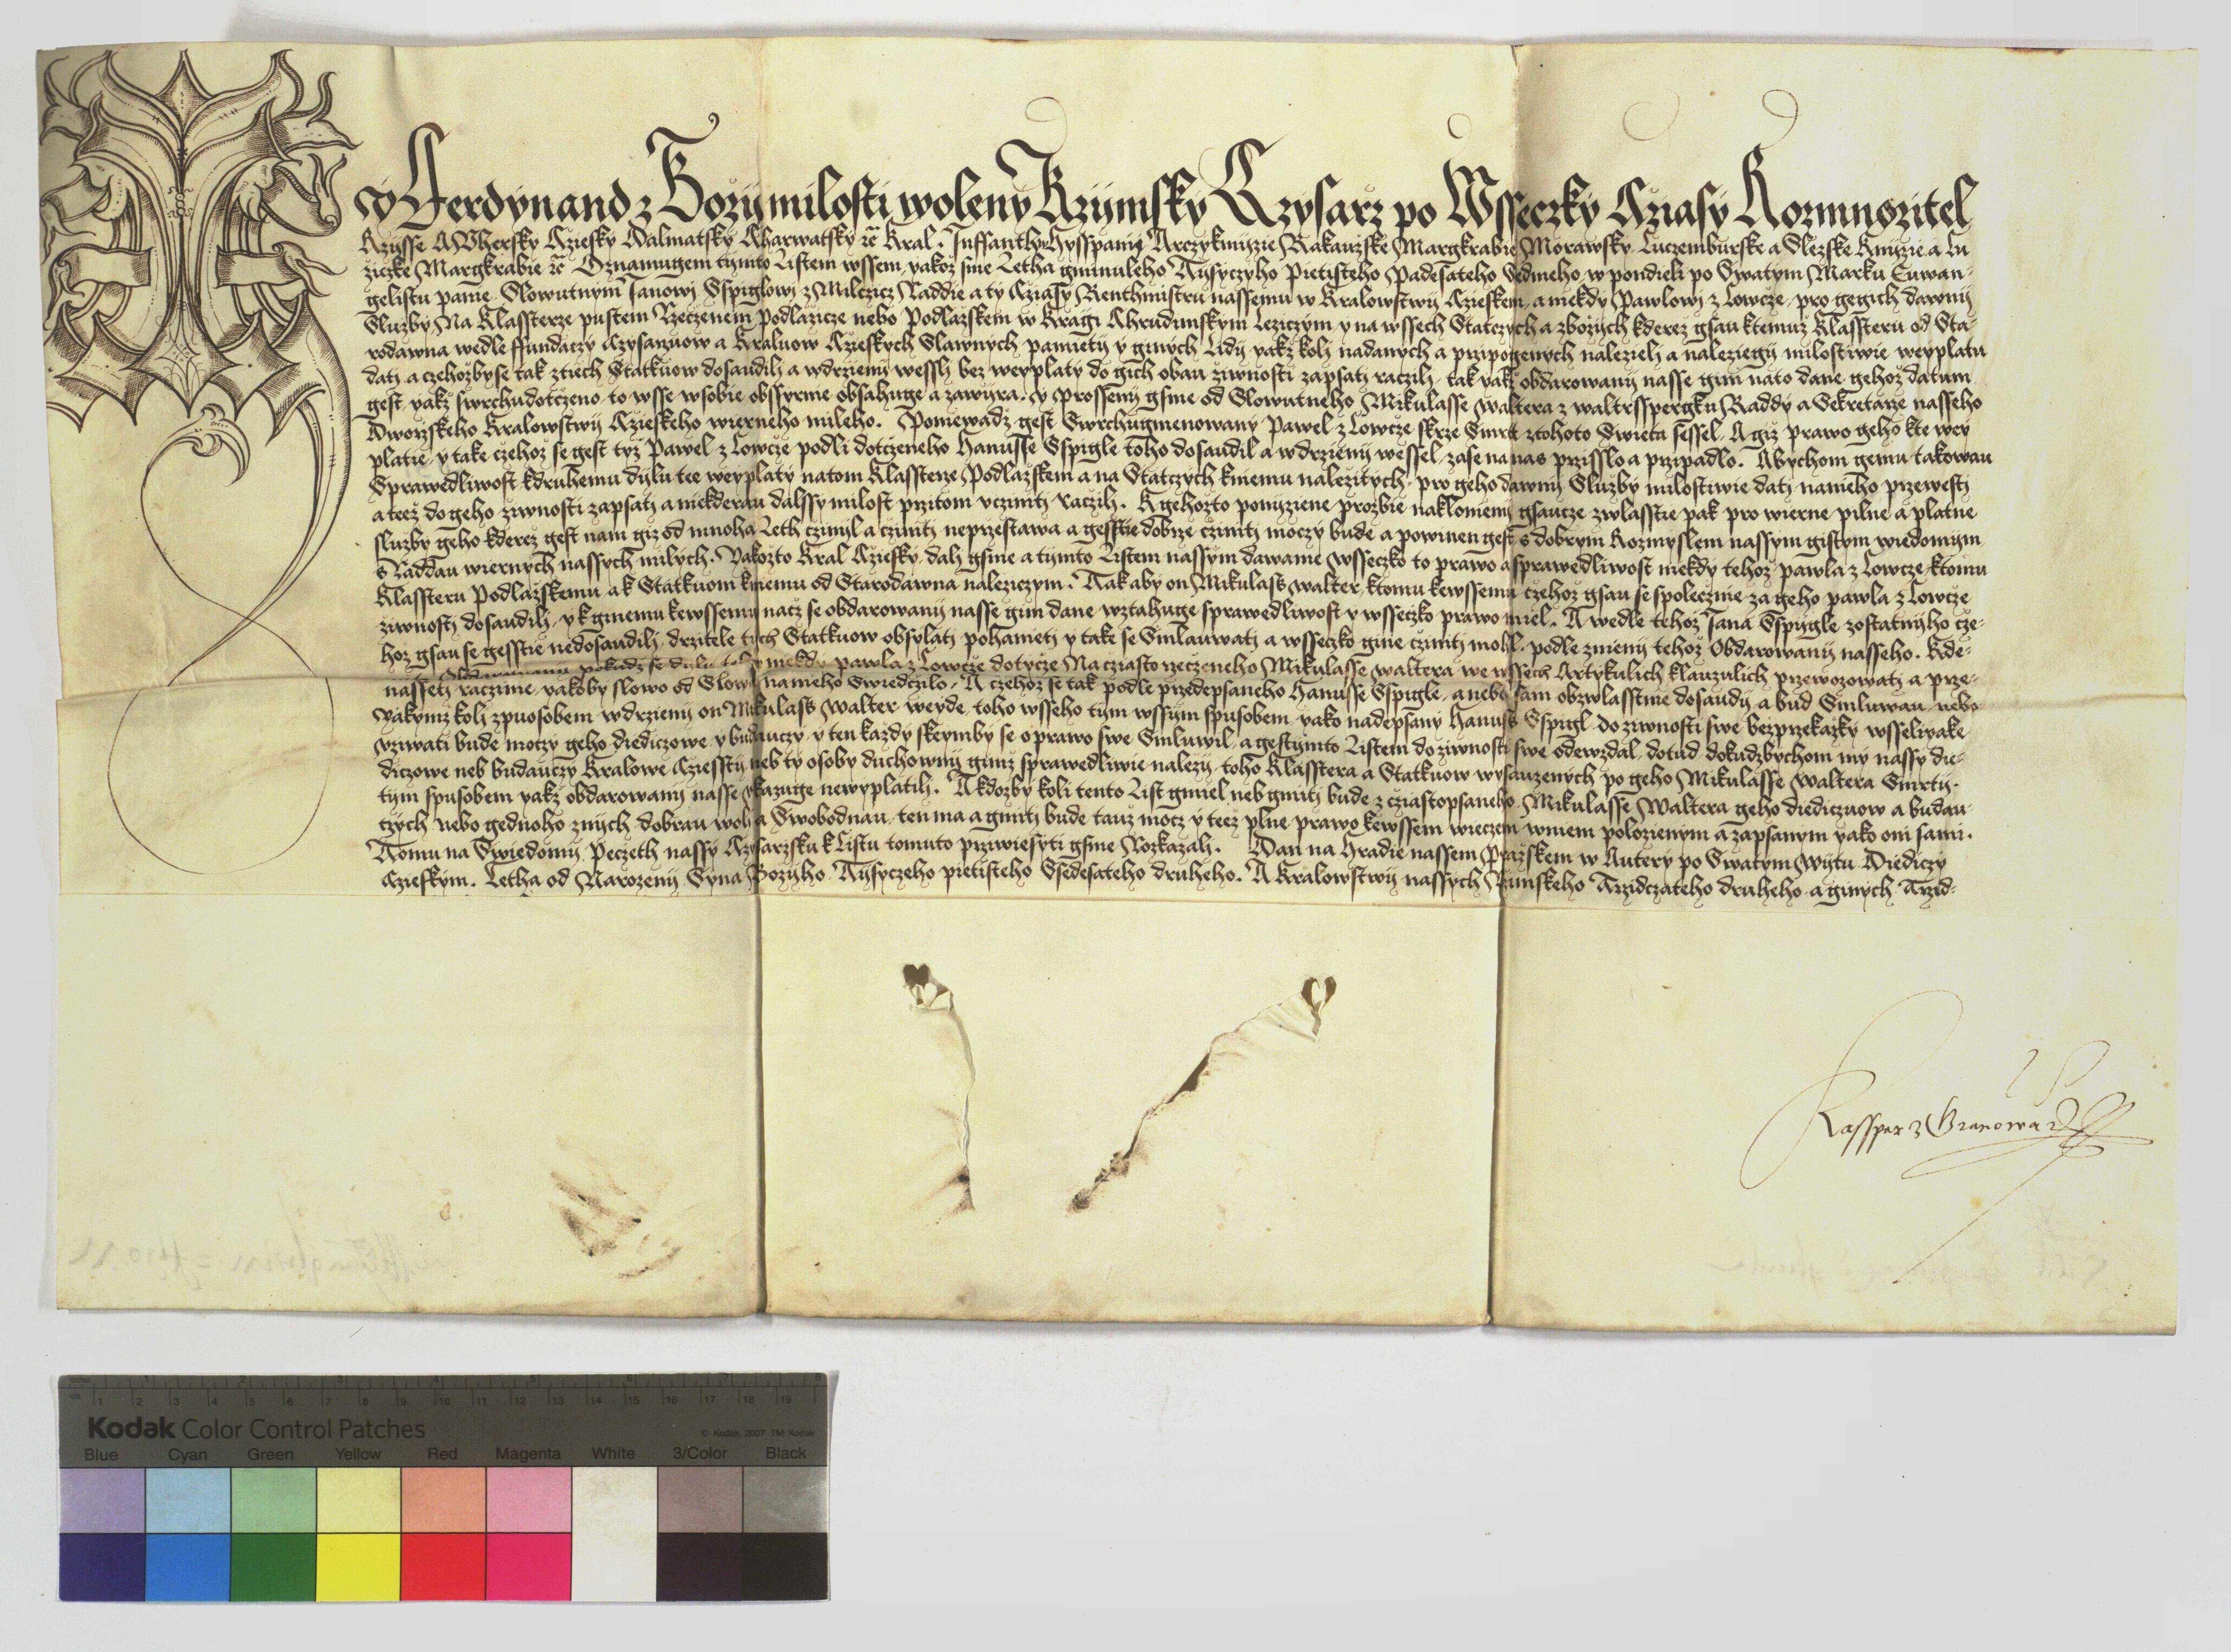 My Ferdynand z Bozij milosti woleny Rzijmsky Czysarz po Wsseczky Cziasy Rozmnozitel
Rzijsse A Vhersky Cziesky Dalmatsky Charwatsky zc Kral. Inffanth Hysspanij Arczyknijzie Rakauzske Margkrabie Morawsky Luczemburske a Slezske Knijzie a Lu
ziczke Margkrabie zc Oznamugem tijmto Listem wssem, yakoz sme Letha gminuleho Tisyczyho Pietisteho Padesateho Sedmeho w pondieli po Swatym Marku Euwan-
gelistu panie Slowutnym Janowi Sspiglowi z Milczicz Raddie a ty Cziasy Renthmistru nassemu w Kralowstwij Czieskem, a niekdy Pawlowi z Lowcze, pro gegich dawnij
Sluzby Na Klassterze pustem Rzeczenem Podlazicze nebo Podlazskem w Kragi Chrudimskym Leziczym y na wssech Statczych a zbozych kderez gsau ktemuz Klassteru od Sta-
rodawna wedle ffundaczy Czysarzuow a Kraluow Czieskych Slawnych pamieti y ginych Lidij yakz koli nadanych a przipogenych nalezieli a naleziegij milostiwie weyplatu
dati a czehozbyse tak ztiech Statkuow dosaudili a wdrzienij wessli bez weyplaty do gich obau ziwnosti zapsati raczili, tak yakz obdarowanij nasse gim nato dane gehoz datum
gest yakz swrchudotczeno to wsse wsobie obssyrnie obsahuge a zawijra. Y prosseni gsme od Slowutneho Mikulasse Waltera z Waltrsspergku Raddy a Sekretarze nasseho
Dworskeho Kralowstwij Czieskeho wierneho mileho. Poniewadz gest Swrchugmenowany Pawel z Lowcze skrze Smrt ztohoto Swieta sessel, A giz prawo geho kte wey
platie, y take czehoz se gest tyz Pawel z Lowcze podli dotczeneho Hanusse Sspigle toho dosaudil a wdrzienij wessel, zase na nas przisslo a przipadlo. Abychom gemu takowau
Sprawedliwost kdruhemu dijlu tee weyplaty natom Klassterze Podlazskem a na Statczych kniemu nalezitych, pro geho dawnij Sluzby milostiwie dati nanieho przewesti
a teez do geho ziwnosti zapsati a niekderau dalssy milost przitom vcziniti raczili. Kgehozto ponijziene prozbie naklonieni gsaucze zwlasstie pak pro wierne pilne a platne
sluzby geho kderez gest nam giz od mnoha Leth czinil a cziniti neprzestawa a gesstie dobrze cziniti moczy bude a powinen gest s dobrym Rozmyslem nassym gistym wiedomim
s Raddau wiernych nassych milych. Yakozto Kral Cziesky, dali gsme a tijmto Listem nassym dawame wsseczko to prawo a sprawedliwost niekdy tehoz Pawla z Lowcze, ktomu
Klassteru Podlazskemu a k Statkuom kniemu od Starodawna nalezicijm. Tak aby on Mikulass Walter, ktomu kewssemu czehoz gsau se spolecznie za geho Pawla z Lowcze
ziwnosti dosaudili, y k ginemu kewssemu nacz se obdarowanij nasse gim dane wztahuge sprawedliwost y wsseczko prawo miel. A wedle tehoz Jana Sspijgle zostatnijho cze-
hoz gsau se gesstie nedosaudili, drzitele tiech Statkuow obsylati pohaneti y take se Smlauwati a wsseczko gine cziniti mohl, podle znieni tehoz Obdarowanij nasseho. Kde-
pokudz se dijlu toho niekdy Pawla z Lowcze dotycze Na cziastorzeczeneho Mikulasse Waltera we wssech Artykulich klauzulich przewozowati a prze-
nasseti raczime, yakoby slowo od Slowa nanieho Swiedczilo. A czehoz se tak podle przedepsaneho Hanusse Sspigle, a nebo sam obzwlasstnie dosaudij a bud Smluwau, nebo
yakymz koli zpuosobem wdrzienij on Mikulass Walter weyde, toho wsseho tijm wssijm spusobem yako nadepsany Hanuss Sspigl do ziwnosti swe bezprzekazky wsseliyake
vziwati bude moczy geho diediczowe y budauczy, y ten kazdy skeymby se o prawo swe Smluwil, a gestijmto Listem do ziwnosti swe odewzdal, dotud dokudzbychom my nassy die-
diczowe neb budauczy Kralowe Cziessti neb ty osoby duchownij gimz sprawedliwie nalezij, toho Klasstera a Statkuow wysauzenych po geho Mikulasse Waltera Smrti,
tijm spusobem yakz obdarowanij nasse vkazuge newyplatili. A kdozby koli tento List gmiel neb gmiti bude z cziastopsaneho Mikulasse Waltera geho diediczuow a budau-
czych nebo gednoho znich dobrau woli a Swobodnau, ten ma a gmiti bude tauz mocz y teez plne prawo kewssem wieczem wniem polozienym a zapsanym yako oni sami.
Tomu na Swiedomij Peczeth nassy Czysarzsku k Listu tomuto przwiesyti gsme Rozkazali. Dan na Hradie nassem Prazskem w Autery po Swatym Wijtu Diediczy
Czieskym. Letha od Narozenij Syna Bozyho Tisyczeho pietisteho Ssedesateho druheho. A Kralowstwij nassych Rzimskeho Trzidczateho druheho a ginych Trzid-
Kasspar z Granowa
Kodak Color Control Patches
© Kodak, 2007 TM: Kodak
Blue Cyan Green Yellow Red Magenta White 3/Color Black